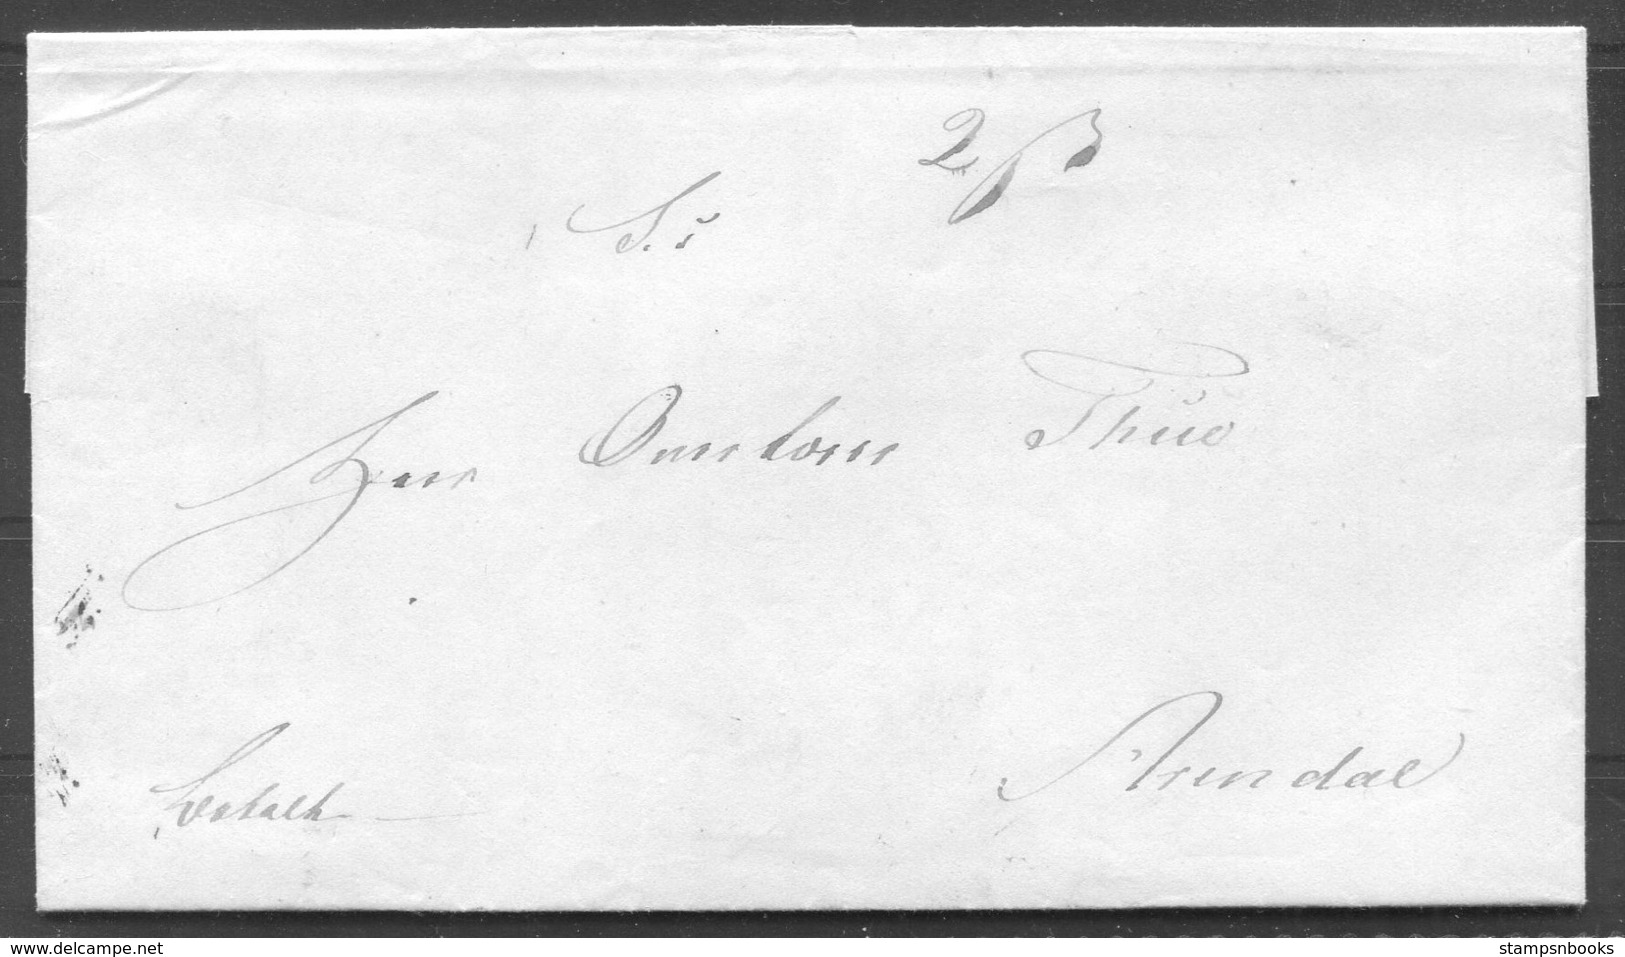 2 ß
S. T.
Herr Overlær Thue
Arendal
betalt
delcampe.net
stampsnbooks